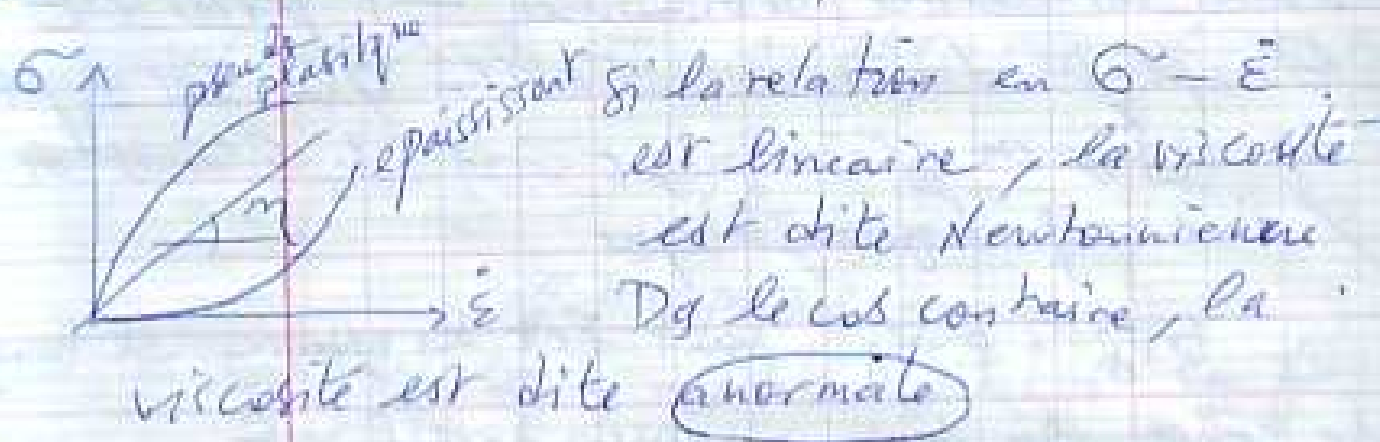 σ
pseudo
plastique
épaississant
η
ε̇
Si la relation en σ - ε̇
est lineaire, la viscosité
est dite Newtonnienne
Ds le cas contaire, la
viscosité est dite anormale